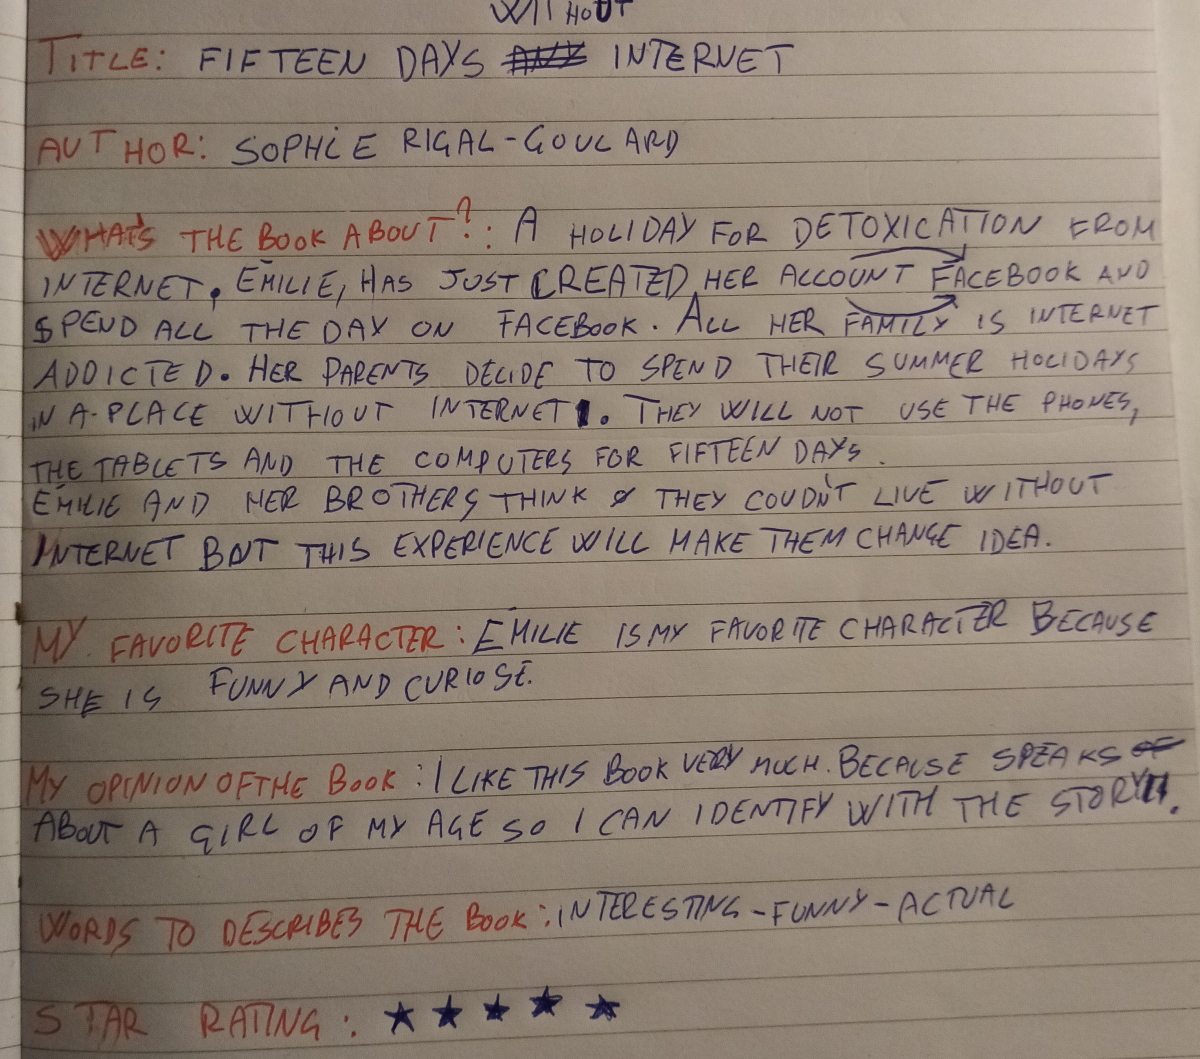 WITHOUT
TITLE: FIFTEEN DAYS INTERNET
AUTHOR: SOPHIE RIGAL-GOULARD
WHAT'S THE BOOK ABOUT?: A HOLIDAY FOR DETOXICATION FROM
INTERNET. ÉMILIE, HAS JUST CREATED HER ACCOUNT FACEBOOK AND
SPEND ALL THE DAY ON FACEBOOK. ALL HER FAMILY IS INTERNET
ADDICTED. HER PARENTS DECIDE TO SPEND THEIR SUMMER HOLIDAYS
IN A PLACE WITHOUT INTERNET. THEY WILL NOT USE THE PHONES,
THE TABLETS AND THE COMPUTERS FOR FIFTEEN DAYS.
ÉMILIE AND HER BROTHERS THINK THEY COUDN'T LIVE WITHOUT
INTERNET BUT THIS EXPERIENCE WILL MAKE THEM CHANGE IDEA.
MY FAVORITE CHARACTER: ÉMILIE IS MY FAVORITE CHARACTER BECAUSE
SHE IS FUNNY AND CURIOSE.
MY OPINION OF THE BOOK: I LIKE THIS BOOK VERY MUCH. BECAUSE SPEAKS
ABOUT A GIRL OF MY AGE SO I CAN IDENTIFY WITH THE STORY.
WORDS TO DESCRIBES THE BOOK: INTERESTING-FUNNY-ACTUAL
STAR RATING: ★ ★ ★ ★ ★